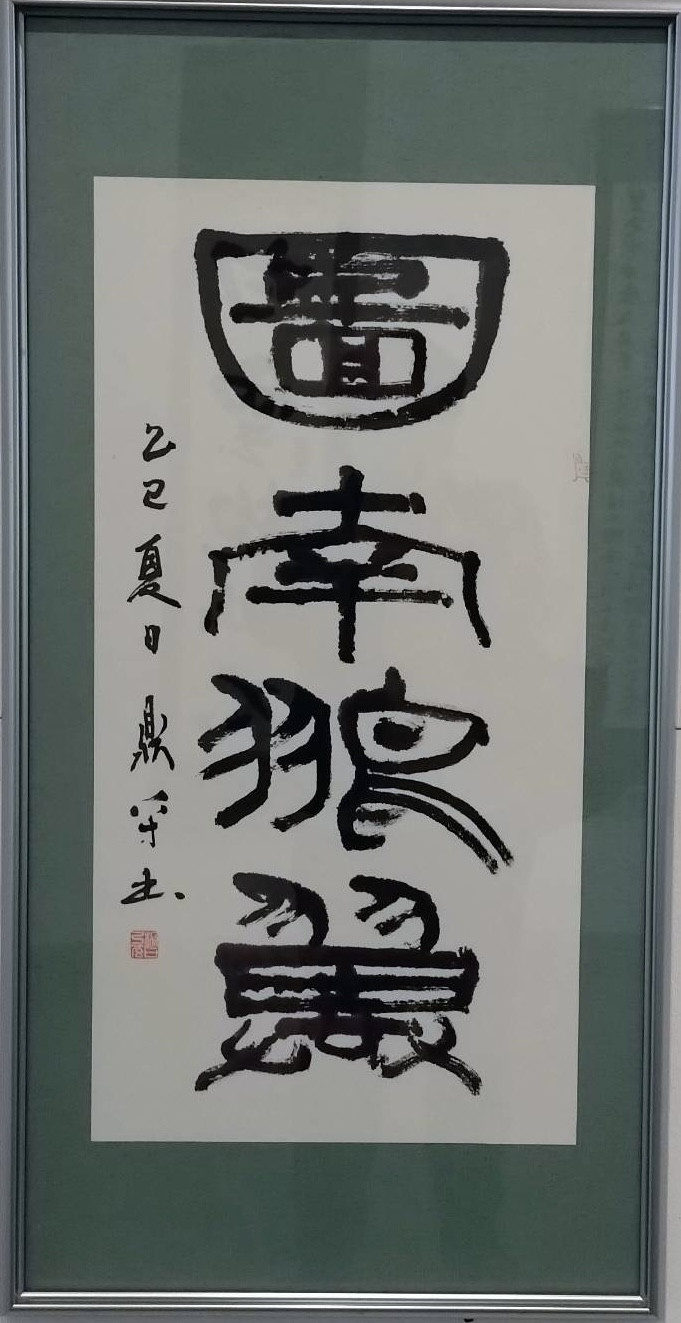 圖南鵬翼
乙巳夏日鼎书